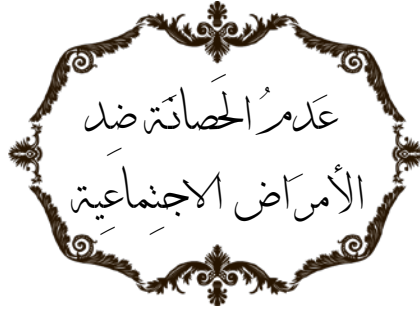 عَدمُ الحَصانَة ضِد
الأمرَاض الاجتِماعِية